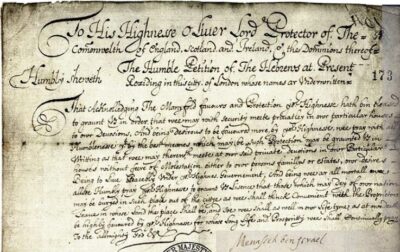 To His Highnesse Oliver Lord Protector of The
Comonwelth of England, Scotland and Ireland, & the Dominions thereof
The Humble Petition of The Hebrews at Present
Humbly Sheweth
Residing in this citty of London whose names ar Underwritten
173
That Acknolledging The Manyfold favours and Protection yor Highnesse hath bin pleased
to graunt us in order that wee may with security meete privatley in our particular houses
to our Devotions, And being desirous to be favoured more by yor Highnesse, wee pray with all
Humblenesse yt by the best meanes which may be Such Protection may be graunted us in
Writing as that wee may therewth meete at our said private devotions in our Particular
houses without feere of Molestation either to our persons famillys or estates, our desires
being to Live Peacebly under yor Highnes Governement, And being wee ar all mortall wee
allsoe Humbly pray yor Highnesse to graunt us License that those which may dey of our nation
may be buried in such place out of the cittye as wee shall thinck Convenient with the Proprietors
Leave in whose Land this place shall be, and soe wee shall as well in our Lyfe tyme, as at our death
be highly favoured by yor Highnesse for whose Long Lyfe and Prosperity wee shall Continually pray
To the allmighty God
HER MAJESTY
Menasseh ben Israel